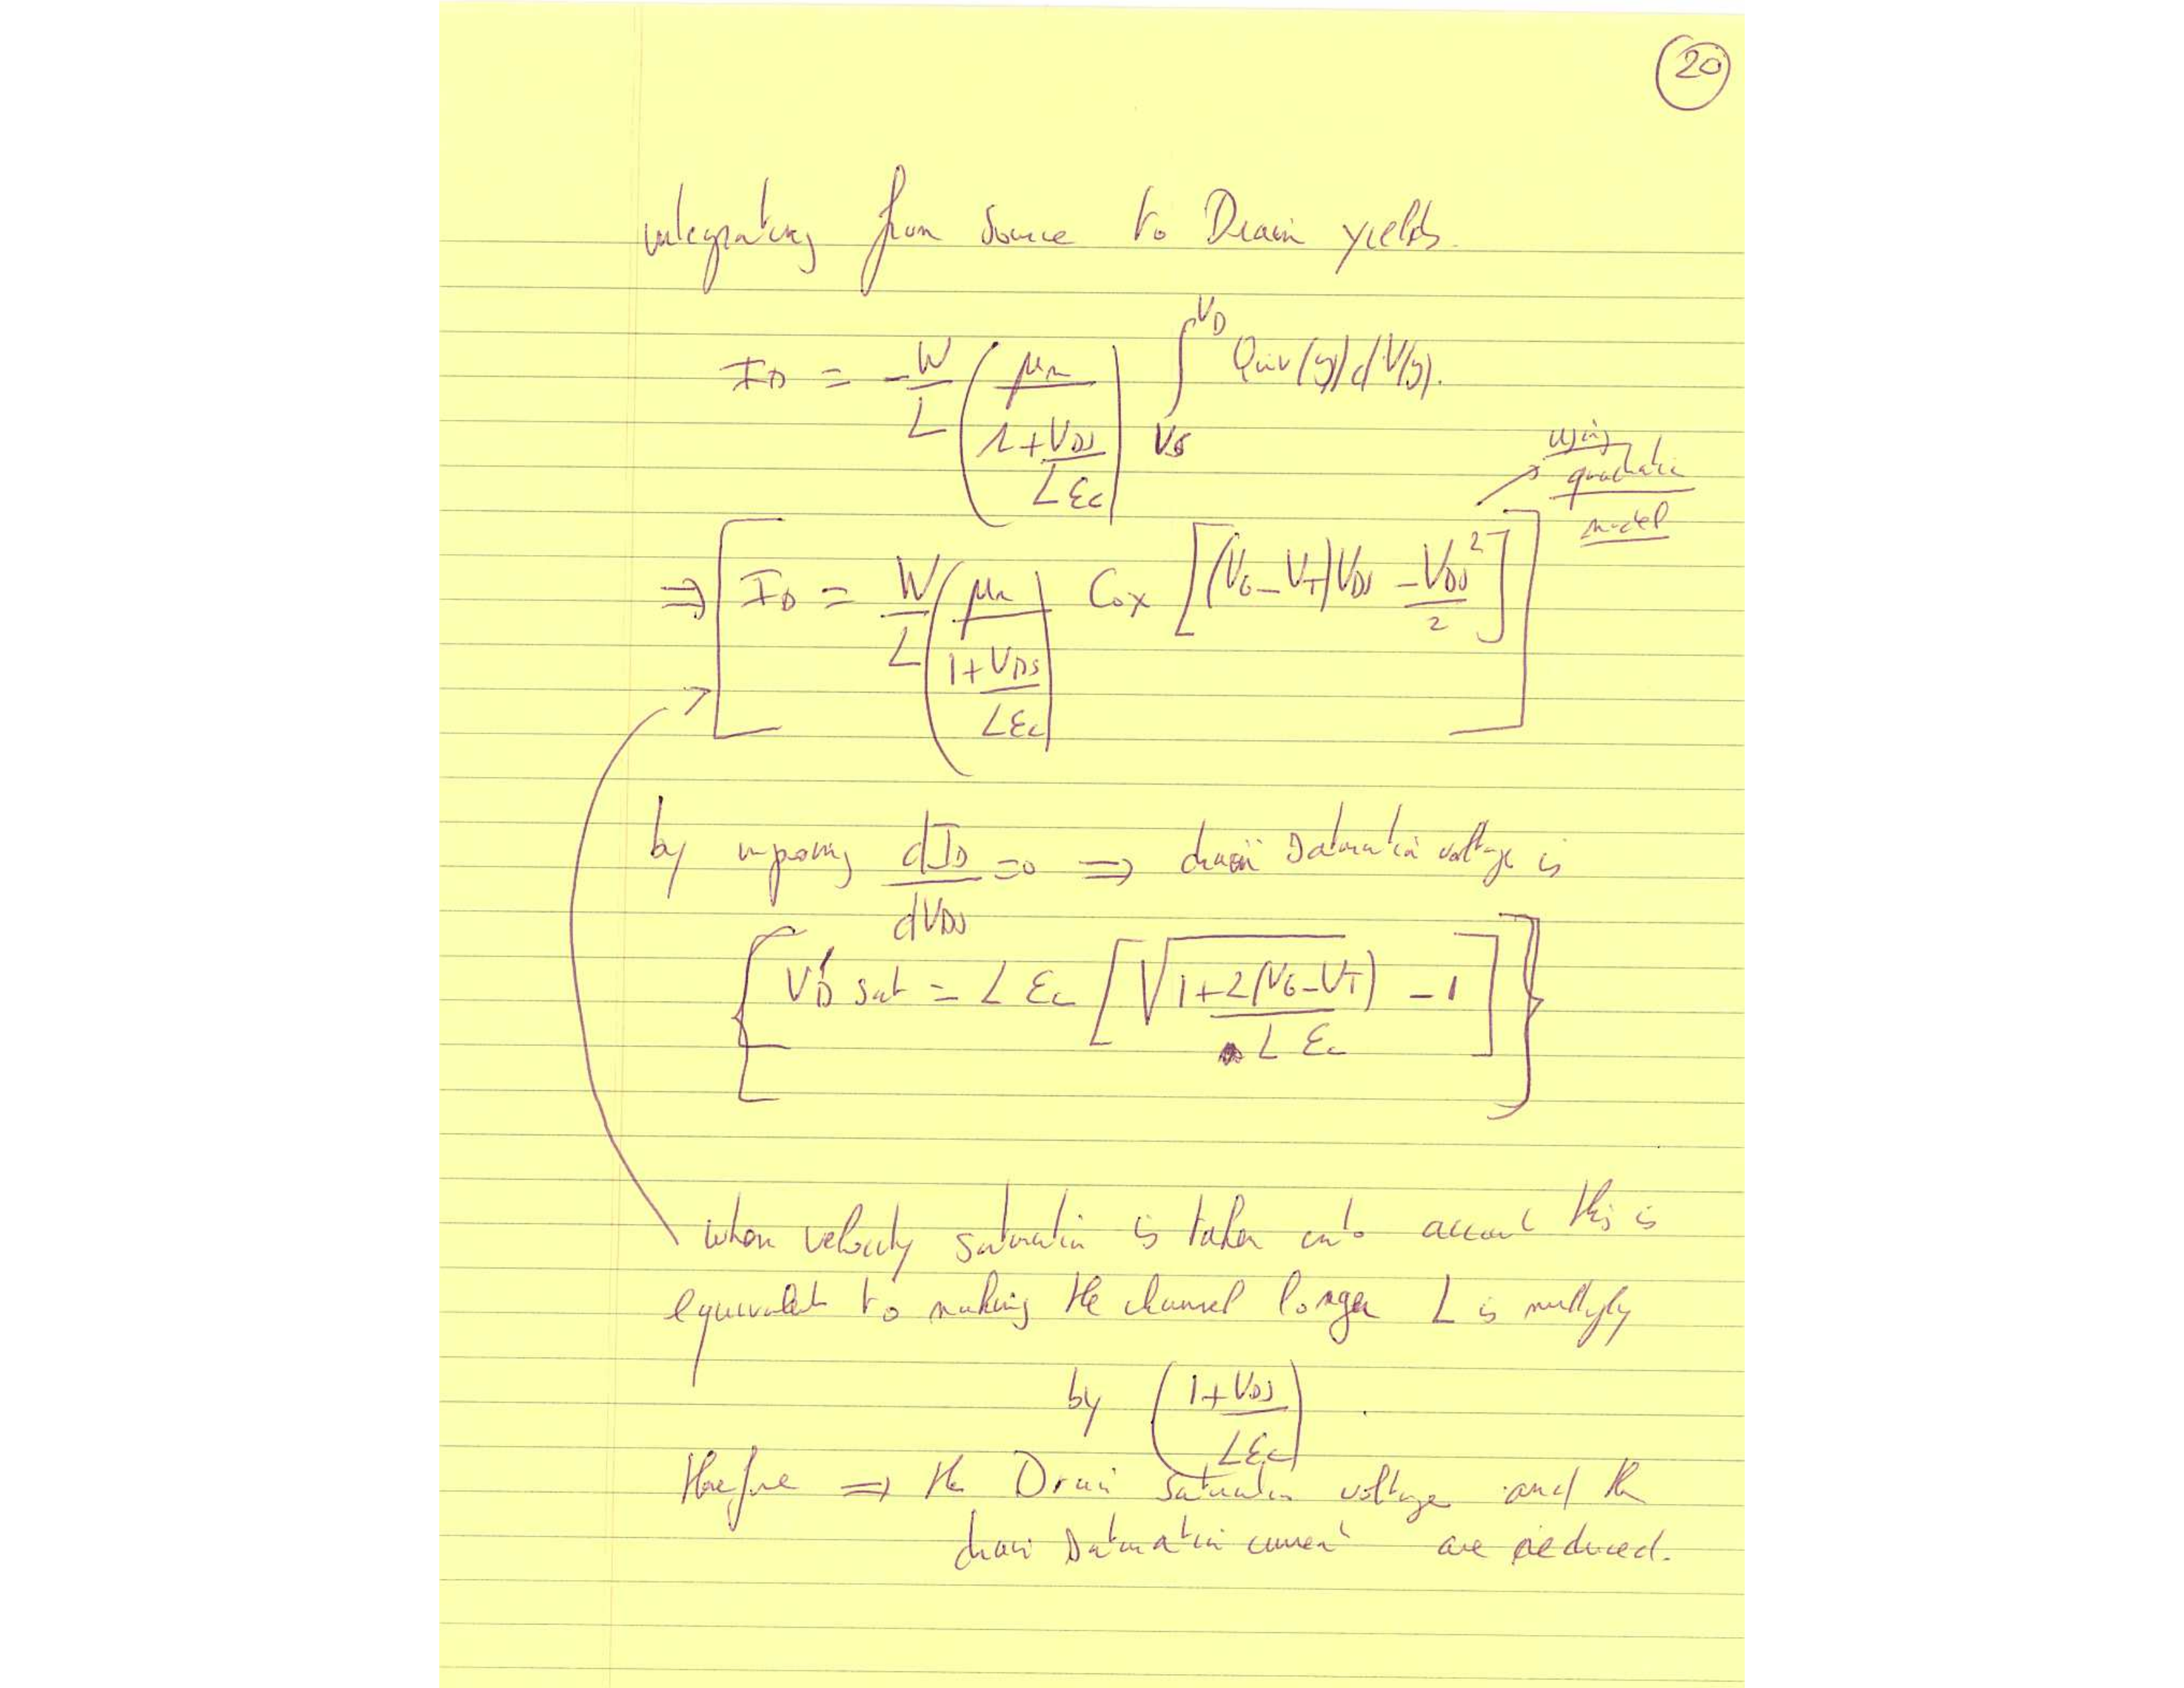 20
integrating from Source to Drain yields.
I_D = -W/L (μn / (1 + V_DS/(L Ec))) ∫_{VS}^{VD} Qinv(y) dV(y).
using
quadratic
model
⇒ [ I_D = W/L (μn / (1 + V_DS/(L Ec))) Cox [(V_G - V_T) V_DS - V_DS²/2] ]
by imposing dI_D/dV_DS = 0 ⇒ drain saturation voltage is
{ V'_D sat = L Ec [ √(1 + 2(V_G - V_T)/(L Ec)) - 1 ] }
when velocity saturation is taken into account this is
equivalent to making the channel longer L is multiply
by (1 + V_DS/(L Ec)) .
therefore ⇒ the Drain saturation voltage and the
drain saturation current are reduced.